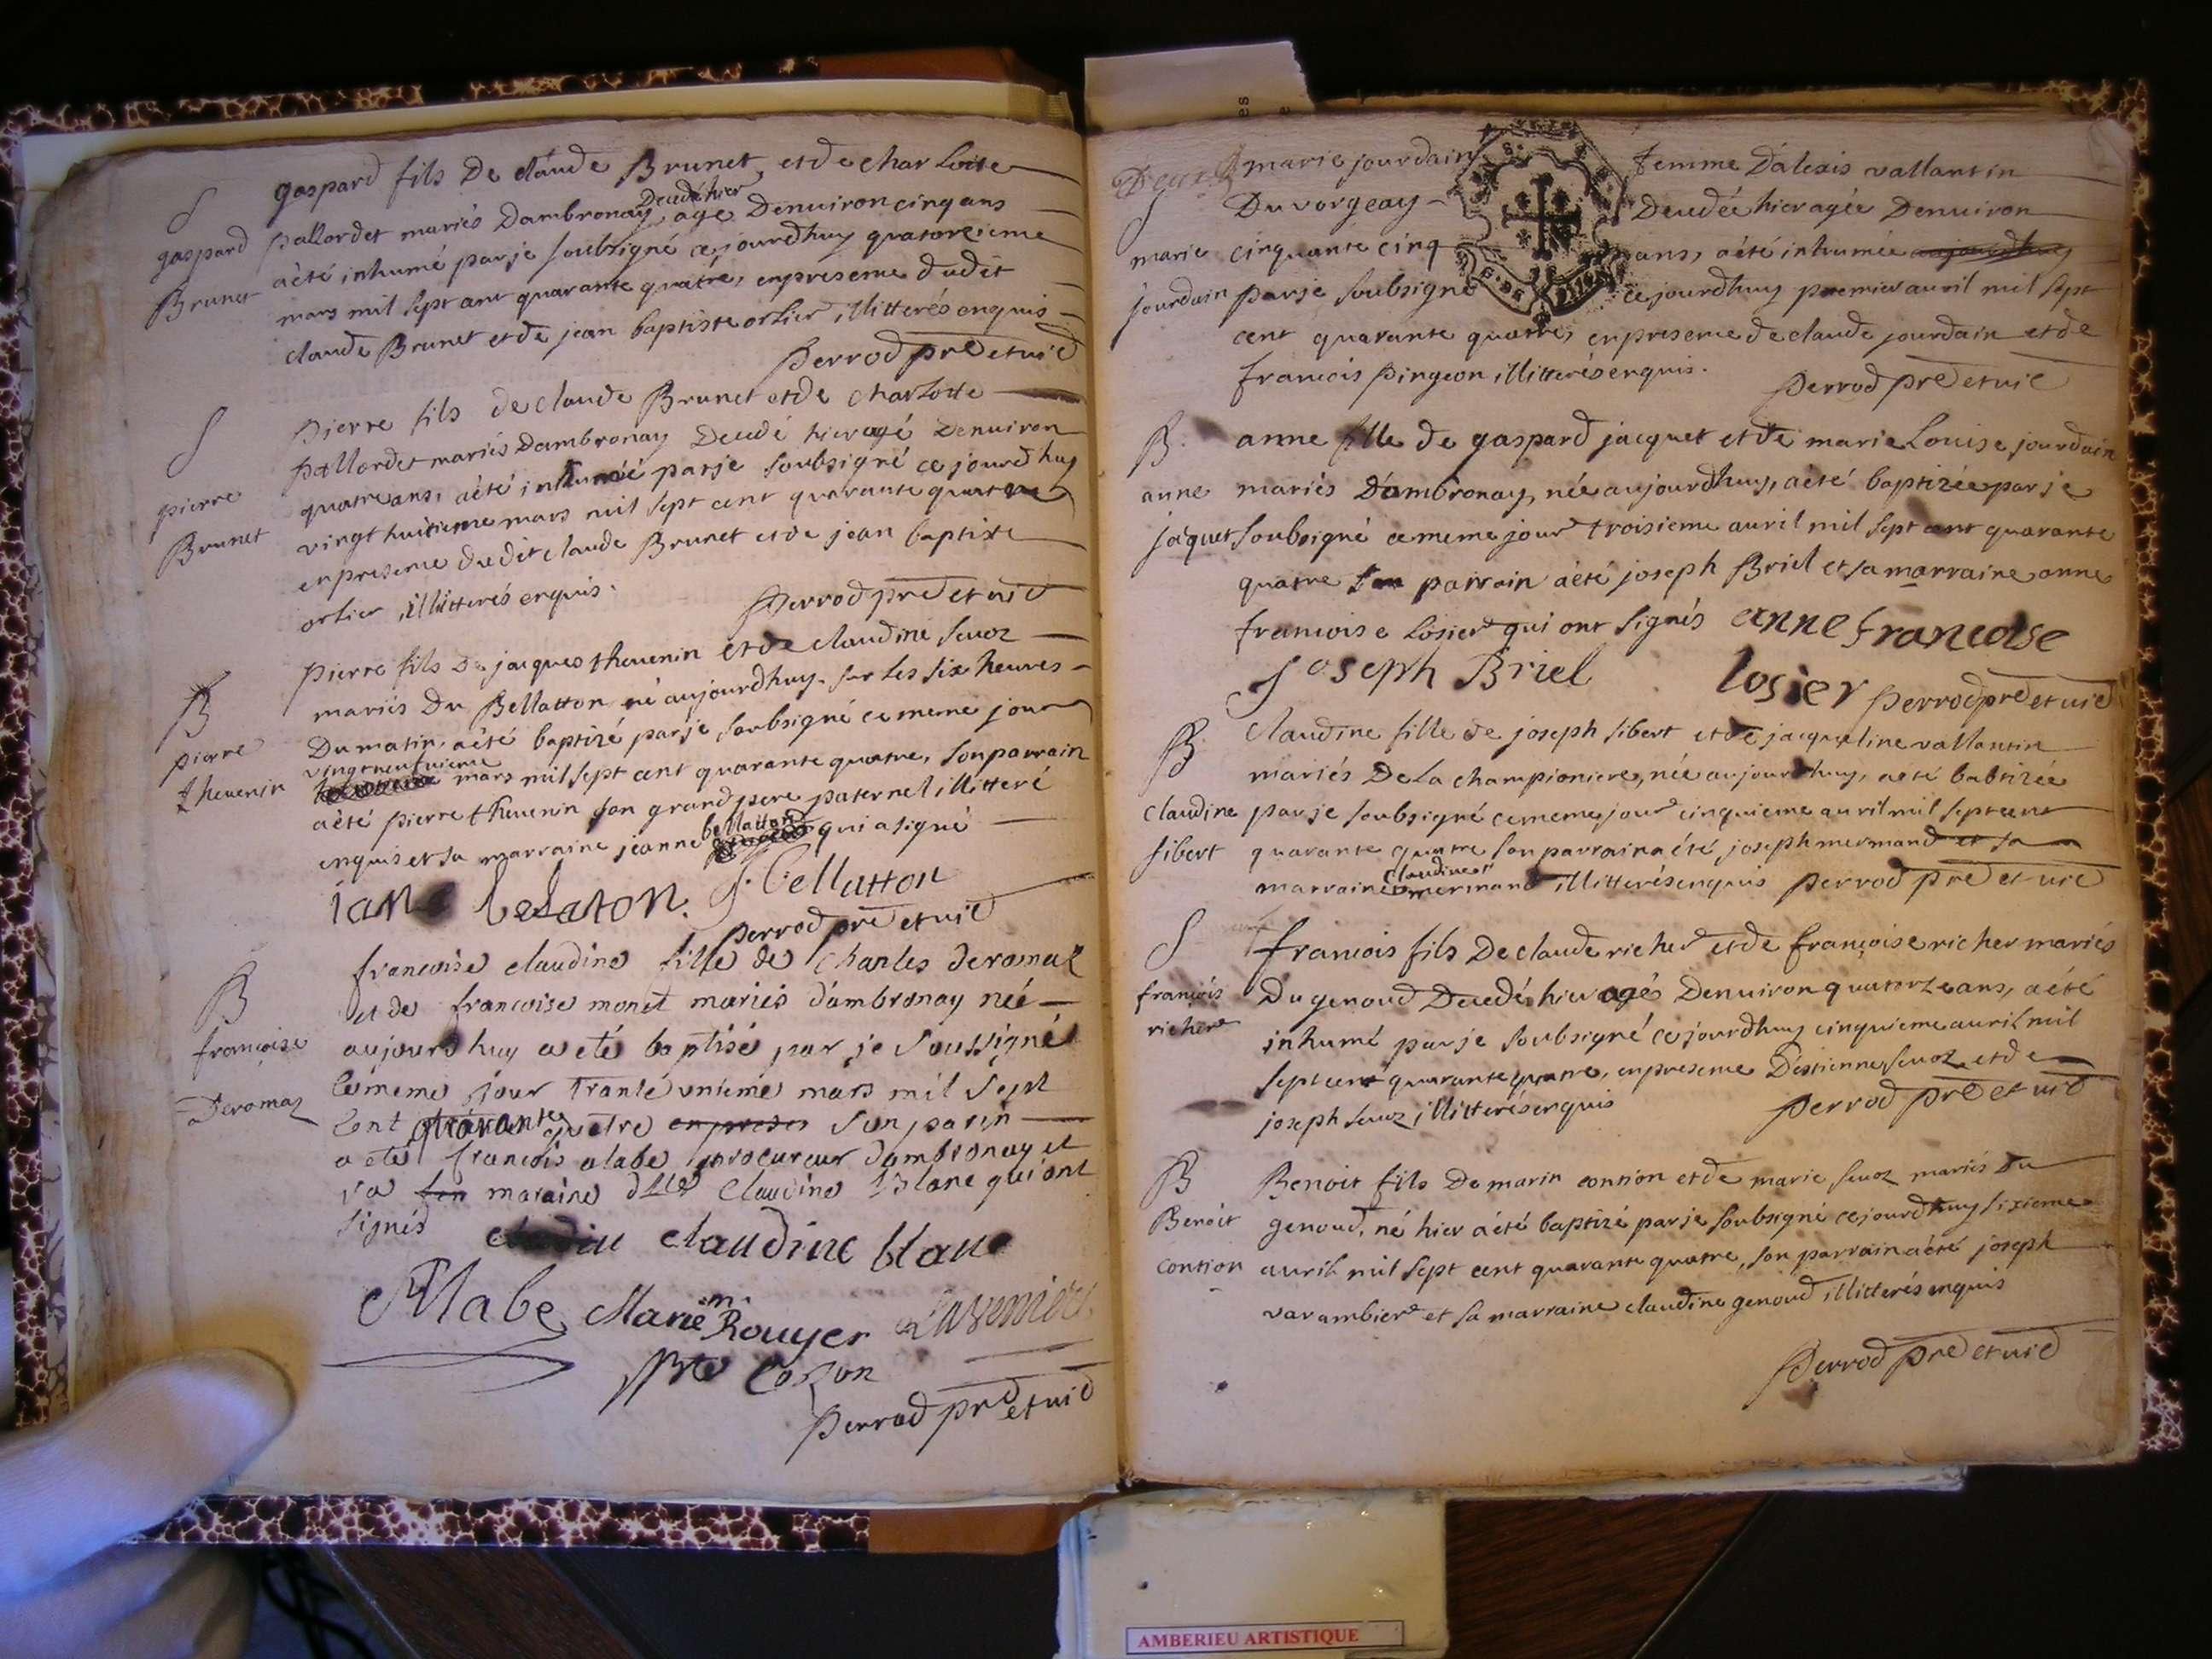 S
gaspard
Brunet
gaspard fils De claude Brunet, et de charlotte
pallordet mariés Dambronay, Decedé hier agé Denuiron cinq ans
aété inhumé par je soubsigné ce jourdhuy quatorzieme
mars mil sept cent quarante quatre, en presence dudit
claude Brunet et de jean baptiste orlier illitterés enquis
perrod pre et vic
S
pierre
Brunet
Pierre fils de claude Brunet et de charlotte
pallordet mariés Dambronay Decedé hier agé Denuiron
quatre ans, aété inhumé par je soubsigné ce jourdhuy
vingt huitieme mars mil sept cent quarante quatre
en presence dudit claude Brunet et de jean baptiste
orlier illitterés enquis.
perrod pre et vic
B
pierre
theuenin
Pierre fils De jacques theuenin et de claudine seuoz
mariés Du Bellatton né aujourdhuy sur les six heures
Du matin, aété baptizé par je soubsigné ce meme jour
vingt neufuieme mars mil sept cent quarante quatre, son parrain
aété pierre theuenin son grand pere paternel illitteré
enquis et sa marraine jeanne bellatton qui a signé
iane belaton. J. Bellatton
perrod pre et vic
B
francoise
Deromaz
francoise claudine fille de Charles deromaz
et de francoise monet mariés dambronay née
aujourdhuy a eté baptisé par je soussigné
le meme jour trante unieme mars mil sept
cent quarante quatre en preses son parin
a eté francois alabe procureur dambronay et
sa son maraine dlle Claudine Blanc qui ont
signés
claudine blanc
Alabe Marie m. Rouyer
perrod pre et vic
S
marie
jourdain
marie jourdain femme Dalexis vallantin
Du vorgeay Decedée hier agée Denuiron
cinquante cinq ans, aété inhumée aujourdhuy
par je soubsigné ce jourdhuy premier auril mil sept
cent quarante quatre, en presence de claude jourdain et de
francois pingeon illitterés enquis.
perrod pre et vic
B.
anne
jaquet
anne fille de gaspard jacquet et de marie Louise jourdain
mariés Dambronay, née aujourdhuy, aété baptizée par je
soubsigné ce meme jour troisieme auril mil sept cent quarante
quatre son parrain aété joseph Briel et sa marraine anne
francoise Losier qui ont signés anne francoise
Joseph Briel losier perrod pre et vic
B
claudine
sibert
Claudine fille de joseph sibert et de jacqueline vallantin
mariés De La championiere, née aujourdhuy, aété babtizée
par je soubsigné ce meme jour cinquieme auril mil sept cent
quarante quatre son parrain aété joseph mermand et sa
marraine claudine mermand illitterés enquis perrod pre et vic
S
francois
richer
francois fils De claude richer et de françoise richer mariés
Du genoud Decedé hier agé Denuiron quatorze ans, aété
inhumé par je soubsigné ce jourdhuy cinquieme auril mil
sept cent quarante quatre, en presence Destienne seuoz et de
joseph seuoz illitterés enquis
perrod pre et vic
B
Benoit
contion
Benoit fils De marin contion et de marie seuoz mariés Du
genoud, né hier aété baptizé par je soubsigné ce jourdhuy sixieme
auril mil sept cent quarante quatre, son parrain aété joseph
varambier et sa marraine claudine genoud illitterés enquis
perrod pre et vic
AMBERIEU ARTISTIQUE